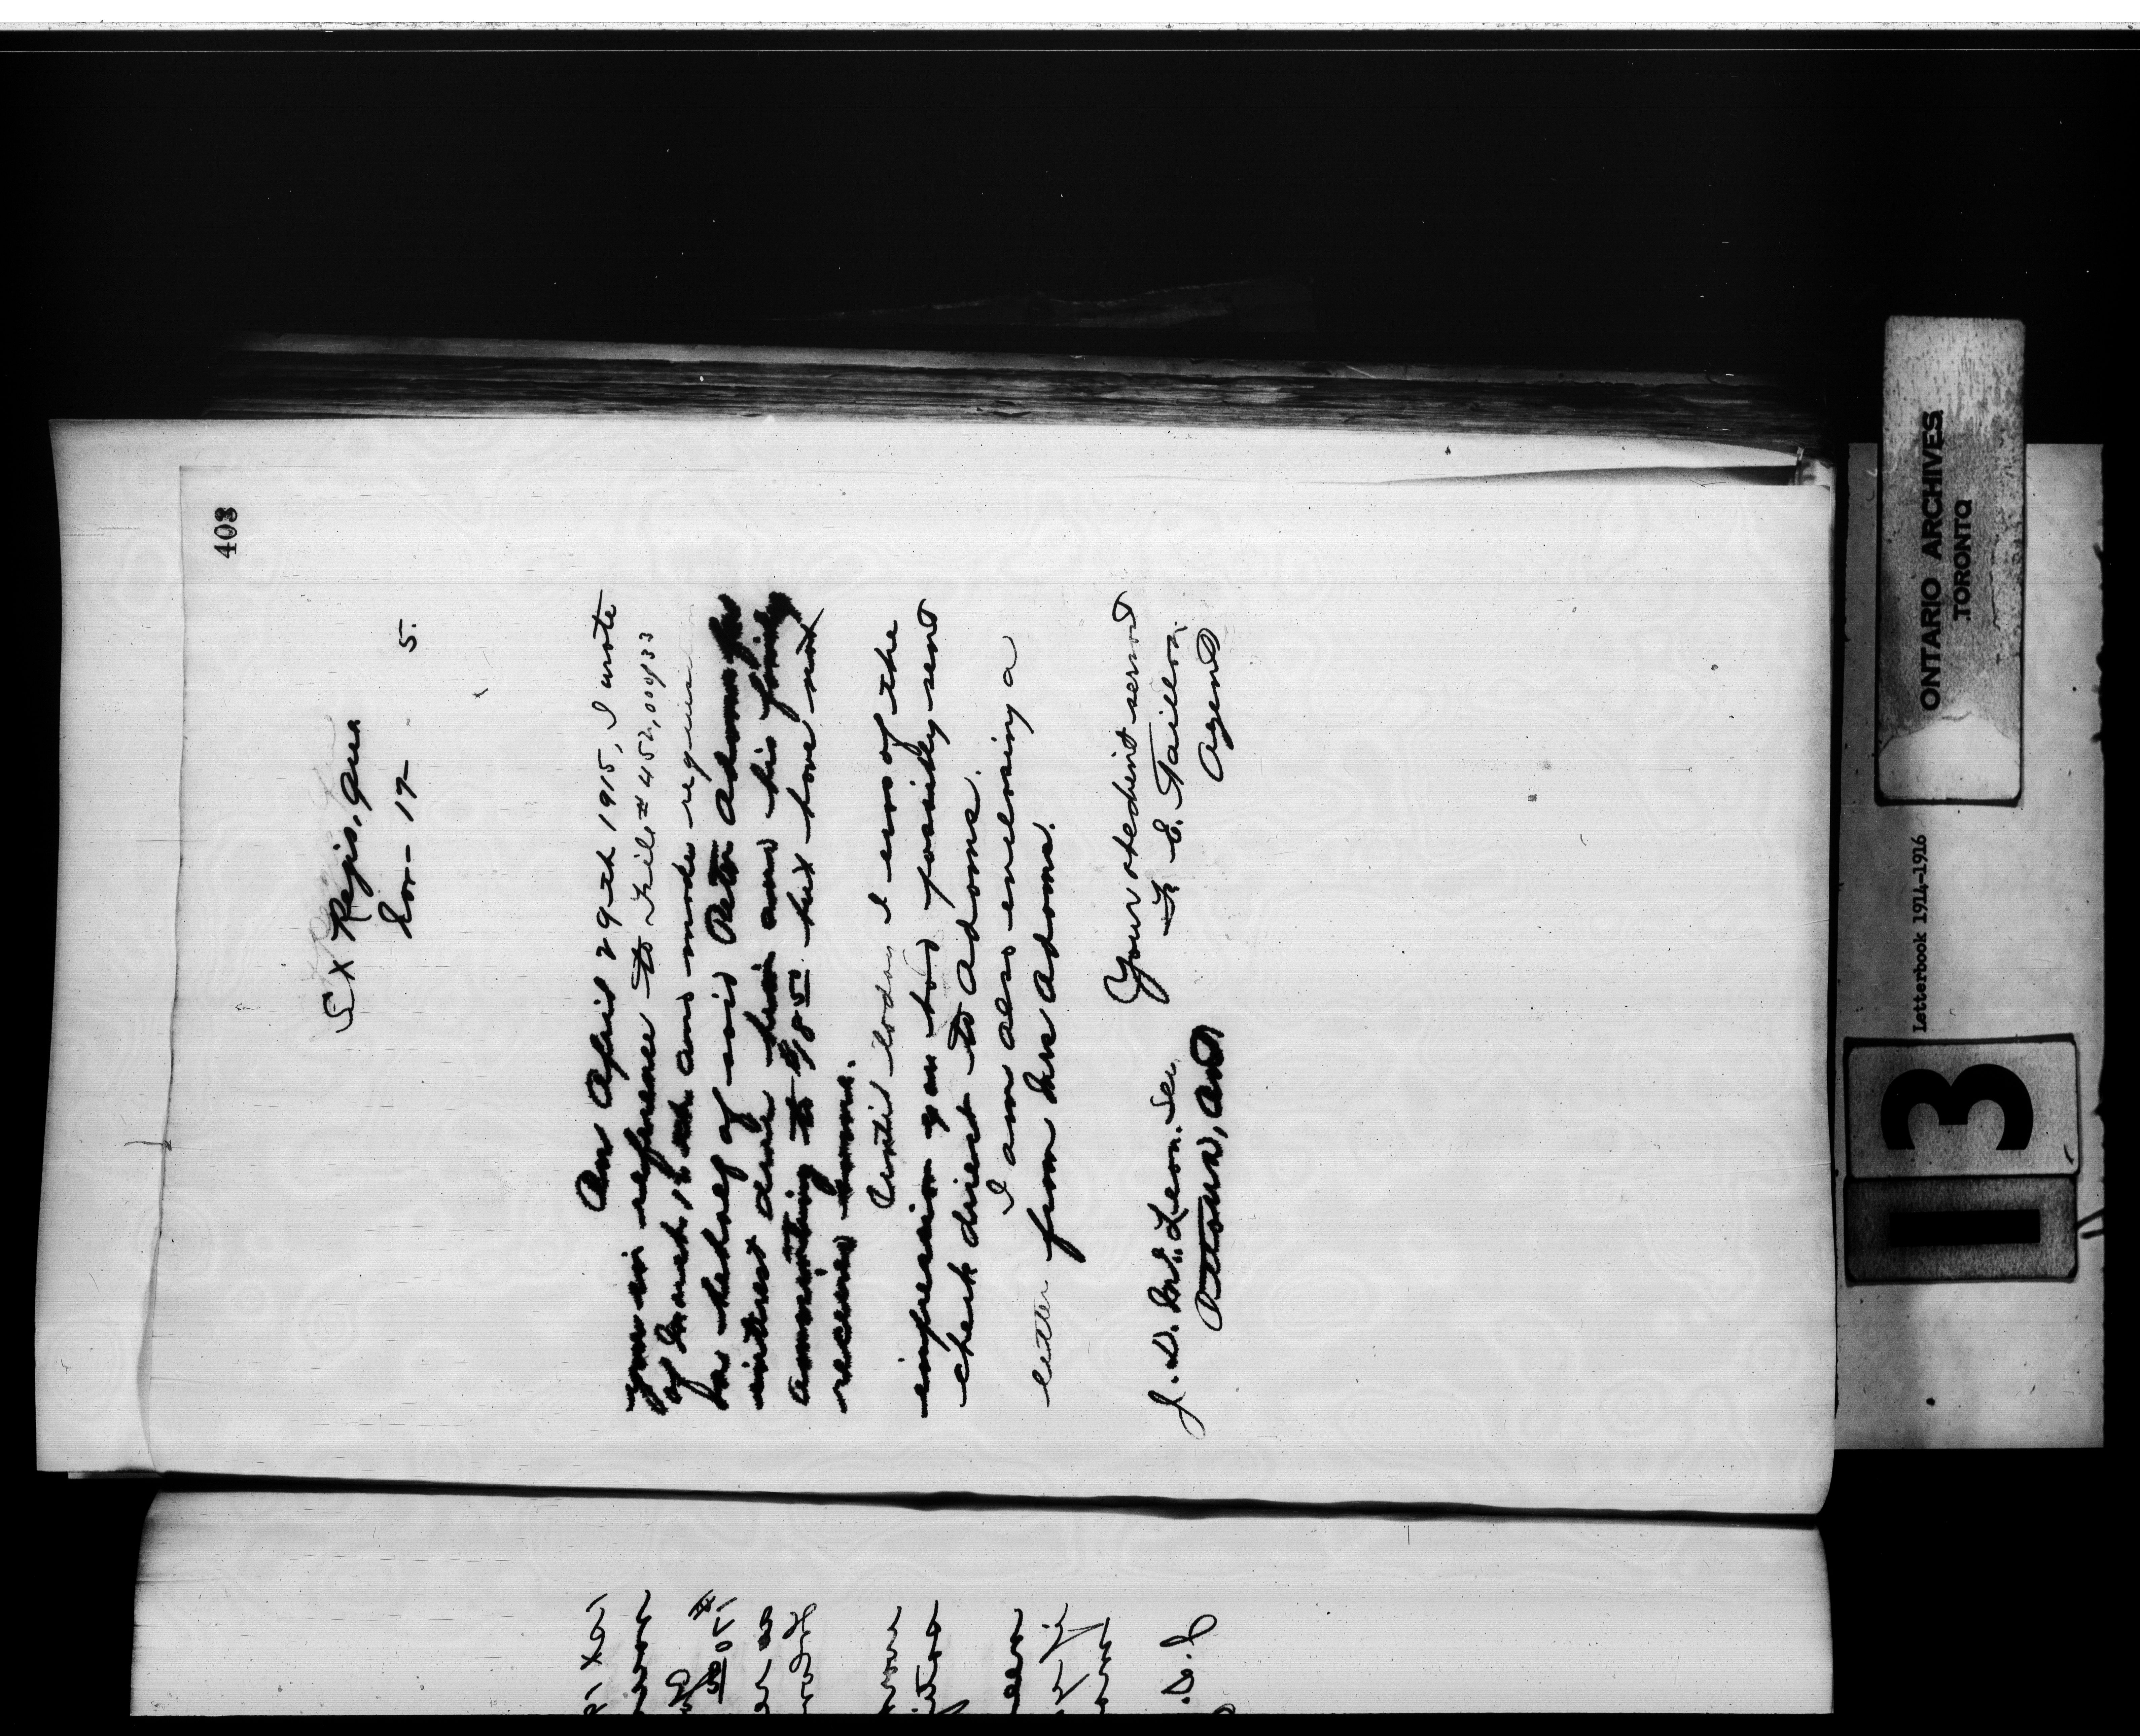 408
St Regis, Que.
Nov- 17- 5.
On April 29th 1915, I wrote
you in reference to File # 452,004/33
of March 16th and made request
on behalf of said Peter Adams for
interest due him and his family
amounting to $18 51 but have not
received same.
Until today I was of the
impression you had possibly sent
check direct to Adams.
I am also enclosing a
letter from Mrs Adams.
Your obedient servant
F. E. Taillon.
Agent
J. D. McLean. Sec.
Ottawa, Ont
ONTARIO ARCHIVES
TORONTO
Letterbook 1914-1916
13